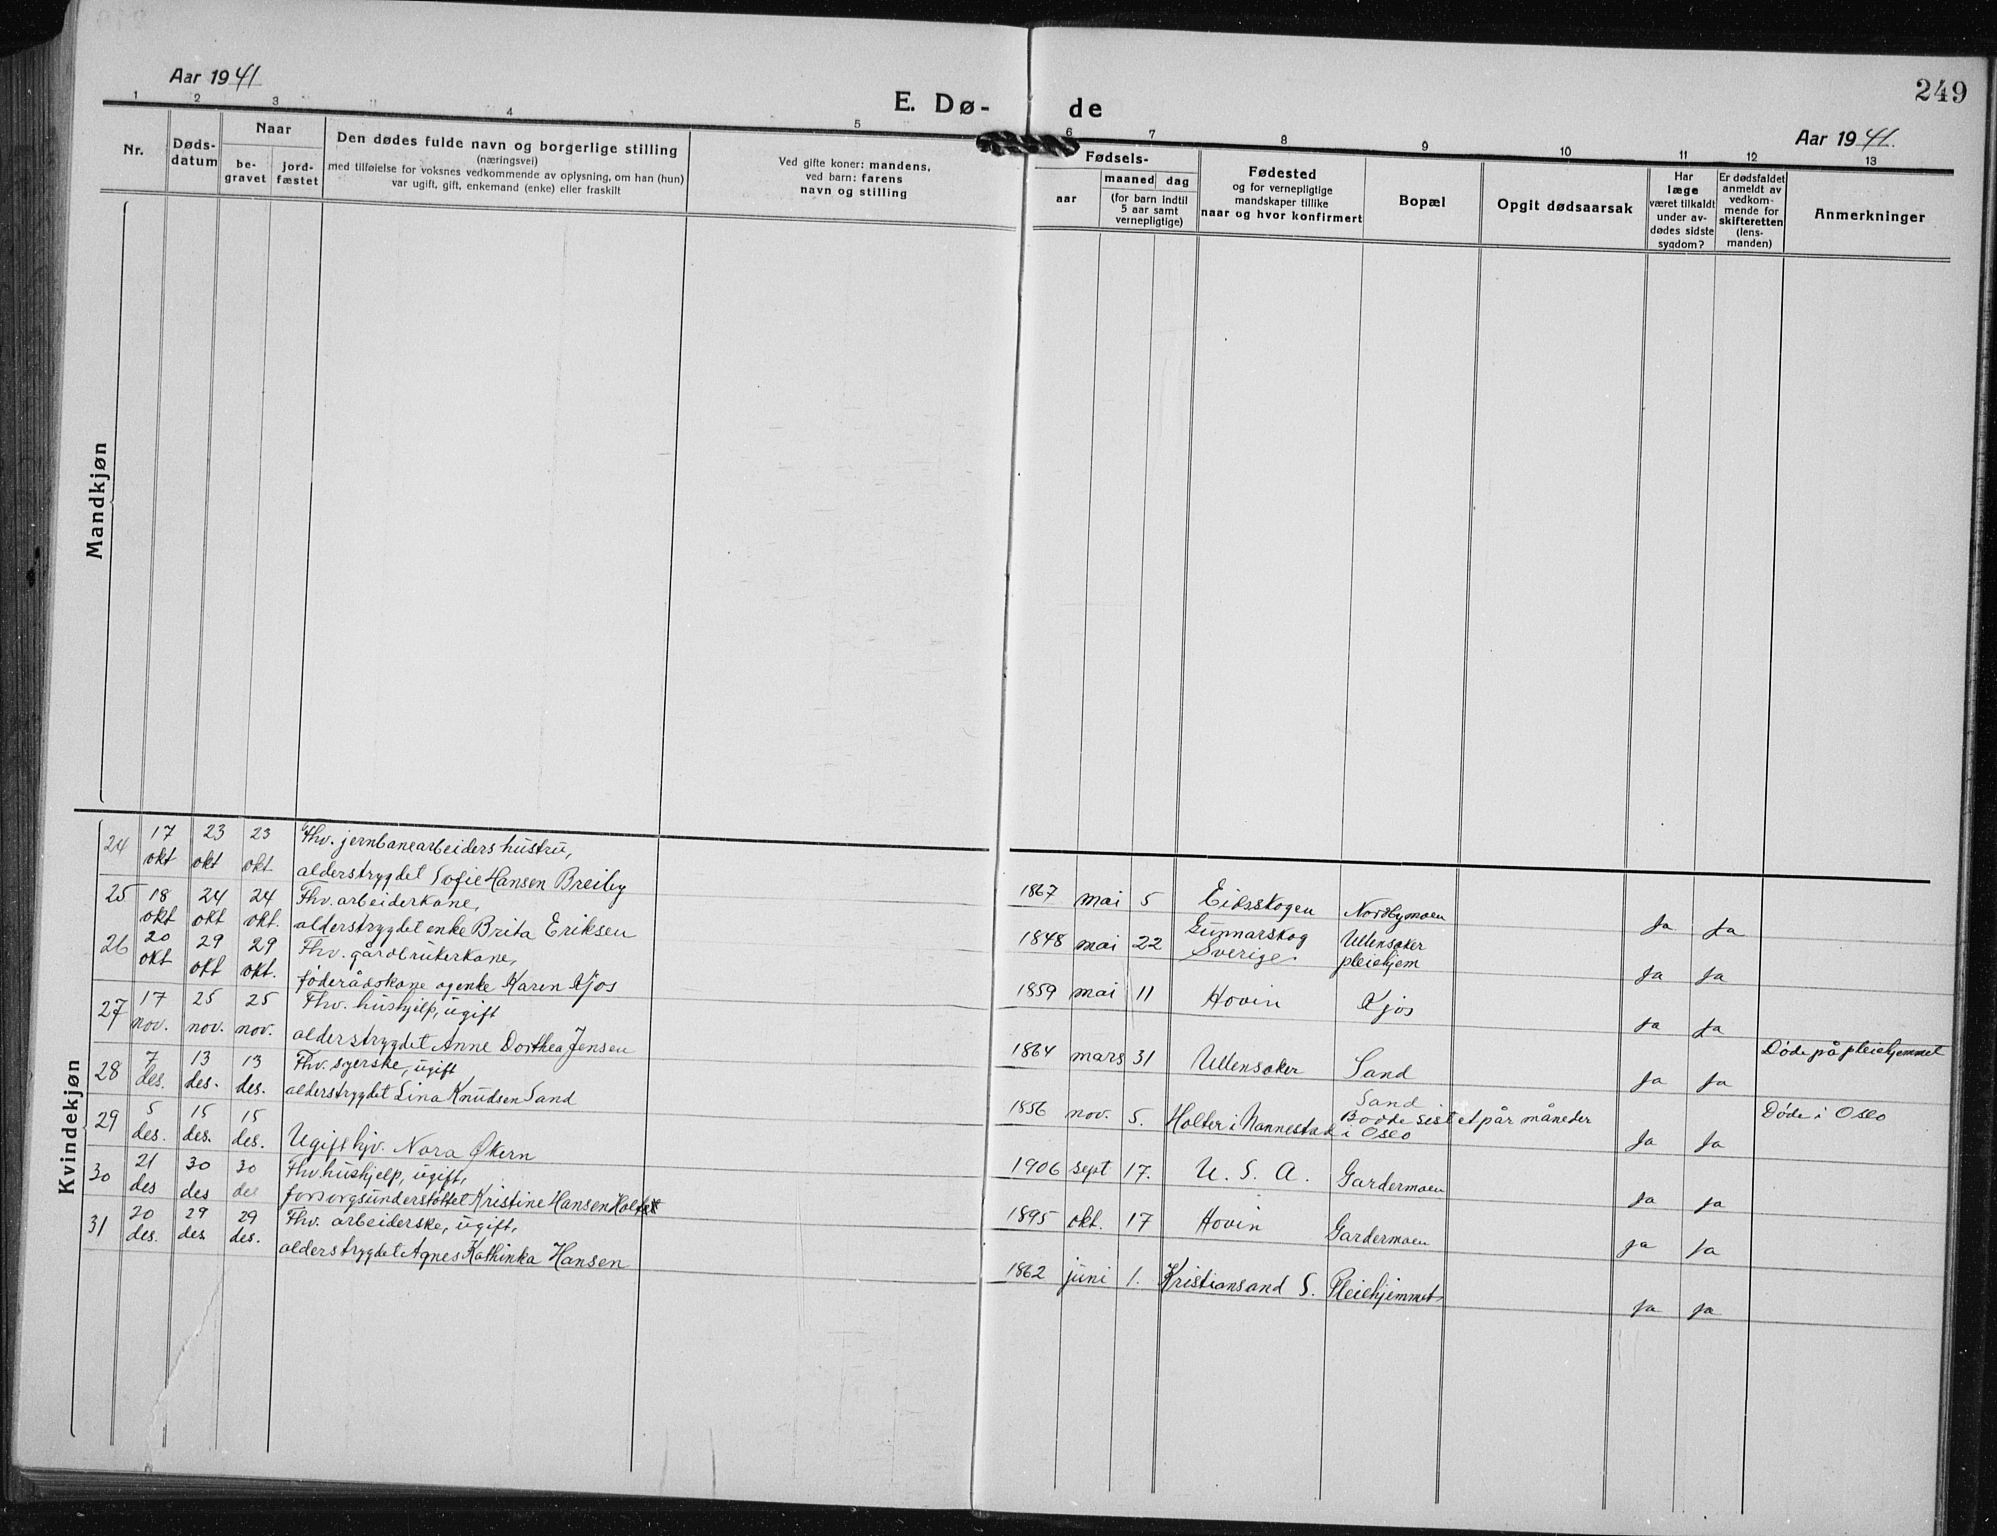 249
Aar 1941
E. Dø- de
Aar 1941.
1 2 3 4 5 6 7 8 9 10 11 12 13
Nr.
Døds-
datum
Naar
be-
gravet
jord-
fæstet
Den dødes fulde navn og borgerlige stilling
(næringsvei)
med tilføielse for voksnes vedkommende av oplysning, om han (hun)
var ugift, gift, enkemand (enke) eller fraskilt
Ved gifte koner: mandens,
ved barn: farens
navn og stilling
Fødsels-
aar
maaned dag
(for barn indtil
5 aar samt
vernepligtige)
Fødested
og for vernepligtige
mandskaper tillike
naar og hvor konfirmert
Bopæl
Opgit dødsaarsak
Har
læge
været tilkaldt
under av-
dødes sidste
sygdom?
Er dødsfaldet
anmeldt av
vedkom-
mende for
skifteretten
(lens-
manden)
Anmerkninger
Mandkjøn
Kvindekjøn
24 17 okt 23 okt 23 okt Fhv. jernbanearbeiders hustru,
alderstrygdet Sofie Hansen Breiby
1867 mai 5 Eidsskogen Nordbymoen Ja Ja
25 18 okt 24 okt 24 okt. Fhv. arbeiderkone,
alderstrygdet enke Brita Eriksen
1848 mai 22 Gunnarskog Sverige. Ullensaker pleiehjem Ja Ja
26 20 okt 29 okt 29 okt. Fhv. gårdbrukerkone,
føderådskone og enke Karen Kjos
1859 mai 11 Hovin Kjos Ja Ja
27 17 nov. 25 nov. 25 nov. Fhv. hushjelp, ugift
alderstrygdet Anne Dorthea Jensen
1864 mars 31 Ullensaker Sand Ja Ja Døde på pleiehjemmet
28 7 des. 13 des. 13 des. Fhv. syerske, ugift
alderstrygdet Lina Knudsen Sand
1856 nov. 5. Holter i Nannestad Sand
Bodde sist et pår måneder
i Oslo Ja Ja Døde i Oslo
29 5 des. 15 des. 15 des.
Ugift hjv. Nora Økern
1906 sept 17. U. S. A. Gardermoen Ja Ja
30 21 des 30 des 30 des Fhv hushjelp, ugift,
forsorgsunderstøttet Kristine Hansen
1895 okt. 17 Hovin Gardermoen Ja Ja
31 20 des. 29 des 29 des. Fhv. arbeiderske, ugift,
alderstrygdet Agnes Kathinka Hansen
1862 juni 1. Kristiansand S. Pleiehjemmet Ja Ja